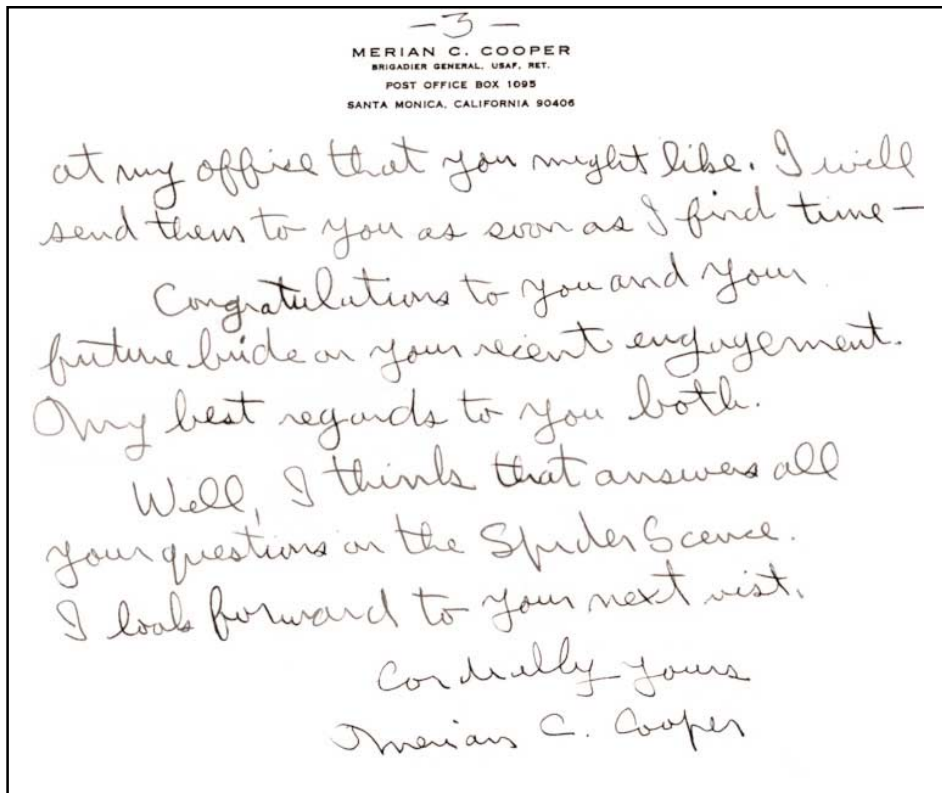 -3-
MERIAN C. COOPER
BRIGADIER GENERAL, USAF, RET.
POST OFFICE BOX 1095
SANTA MONICA, CALIFORNIA 90406
at my office that you might like. I will
send them to you as soon as I find time—
Congratulations to you and your
future bride on your recent engagement.
My best regards to you both.
Well, I think that answers all
your questions on the Spider Scence.
I look forward to your next vist.
Cordially yours
Merian C. Cooper